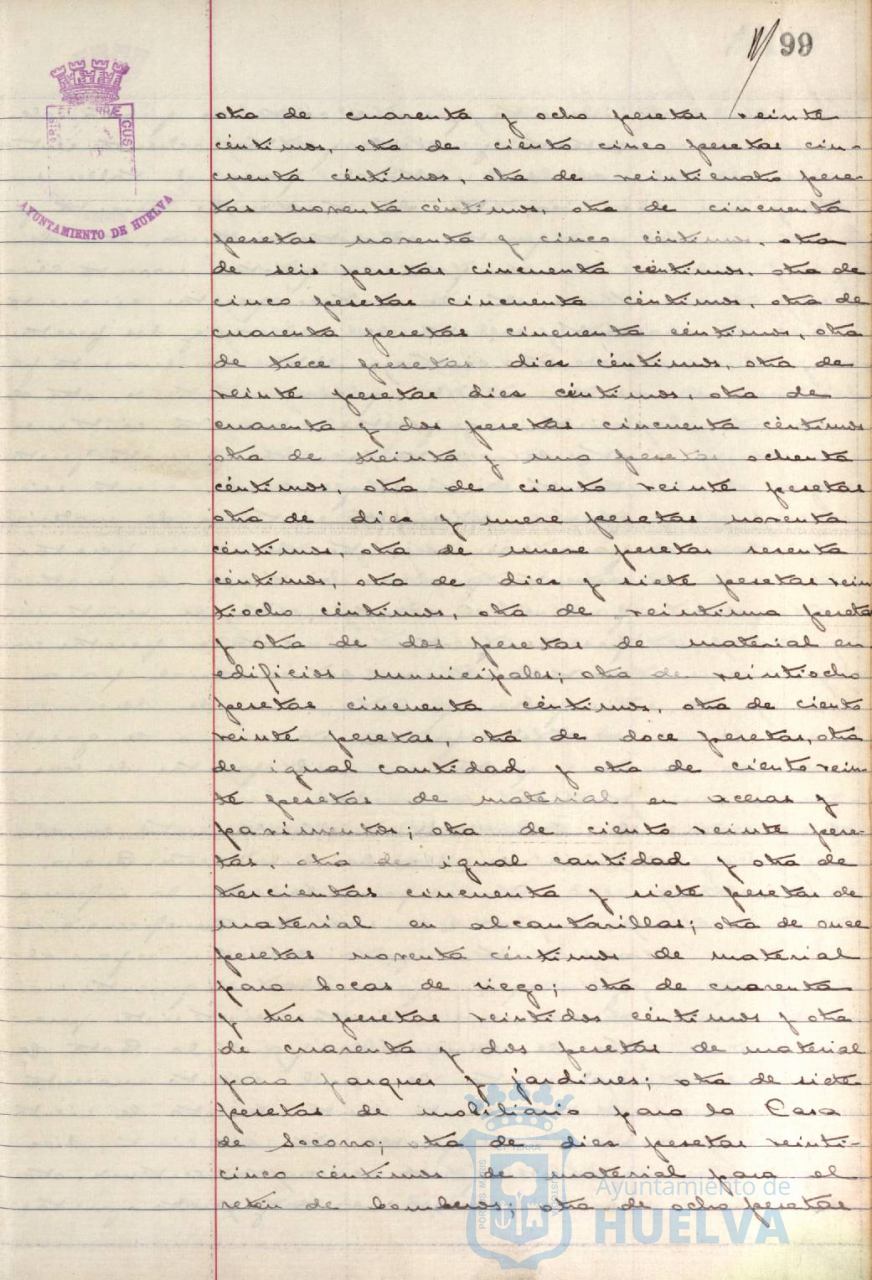 99
otra de cuarenta y ocho pesetas veinte
céntimos, otra de ciento cinco pesetas cin-
cuenta céntimos, otra de veinticuatro pese-
tas noventa céntimos, otra de cincuenta
pesetas noventa y cinco céntimos, otra
de seis pesetas cincuenta céntimos, otra de
cinco pesetas cincuenta céntimos, otra de
cuarenta pesetas cincuenta céntimos, otra
de trece pesetas dies céntimos, otra de
veinte pesetas dies céntimos, otra de
cuarenta y dos pesetas cincuenta céntimos
otra de treinta y una pesetas ochenta
céntimos, otra de ciento veinte pesetas
otra de dies y nueve pesetas noventa
céntimos, otra de nueve pesetas sesenta
céntimos, otra de dies y siete pesetas vein
tiocho céntimos, otra de veintiuna peseta
y otra de dos pesetas de material en
edificios municipales; otra de veintiocho
pesetas cincuenta céntimos, otra de ciento
veinte pesetas, otra de doce pesetas, otra
de igual cantidad y otra de ciento vein-
te pesetas de material en aceras y
pavimentos; otra de ciento veinte pese-
tas, otra de igual cantidad y otra de
trescientas cincuenta y siete pesetas de
material en alcantarillas; otra de once
pesetas noventa céntimos de material
para bocas de riego; otra de cuarenta
y tres pesetas veintidos céntimos y otra
de cuarenta y dos pesetas de material
para parques y jardines; otra de siete
pesetas de mobiliario para la Casa
de Socorro; otra de dies pesetas veinti-
cinco céntimos de material para el
retén de bomberos; otra de ocho pesetas
AYUNTAMIENTO DE HUELVA
Ayuntamiento de
HUELVA